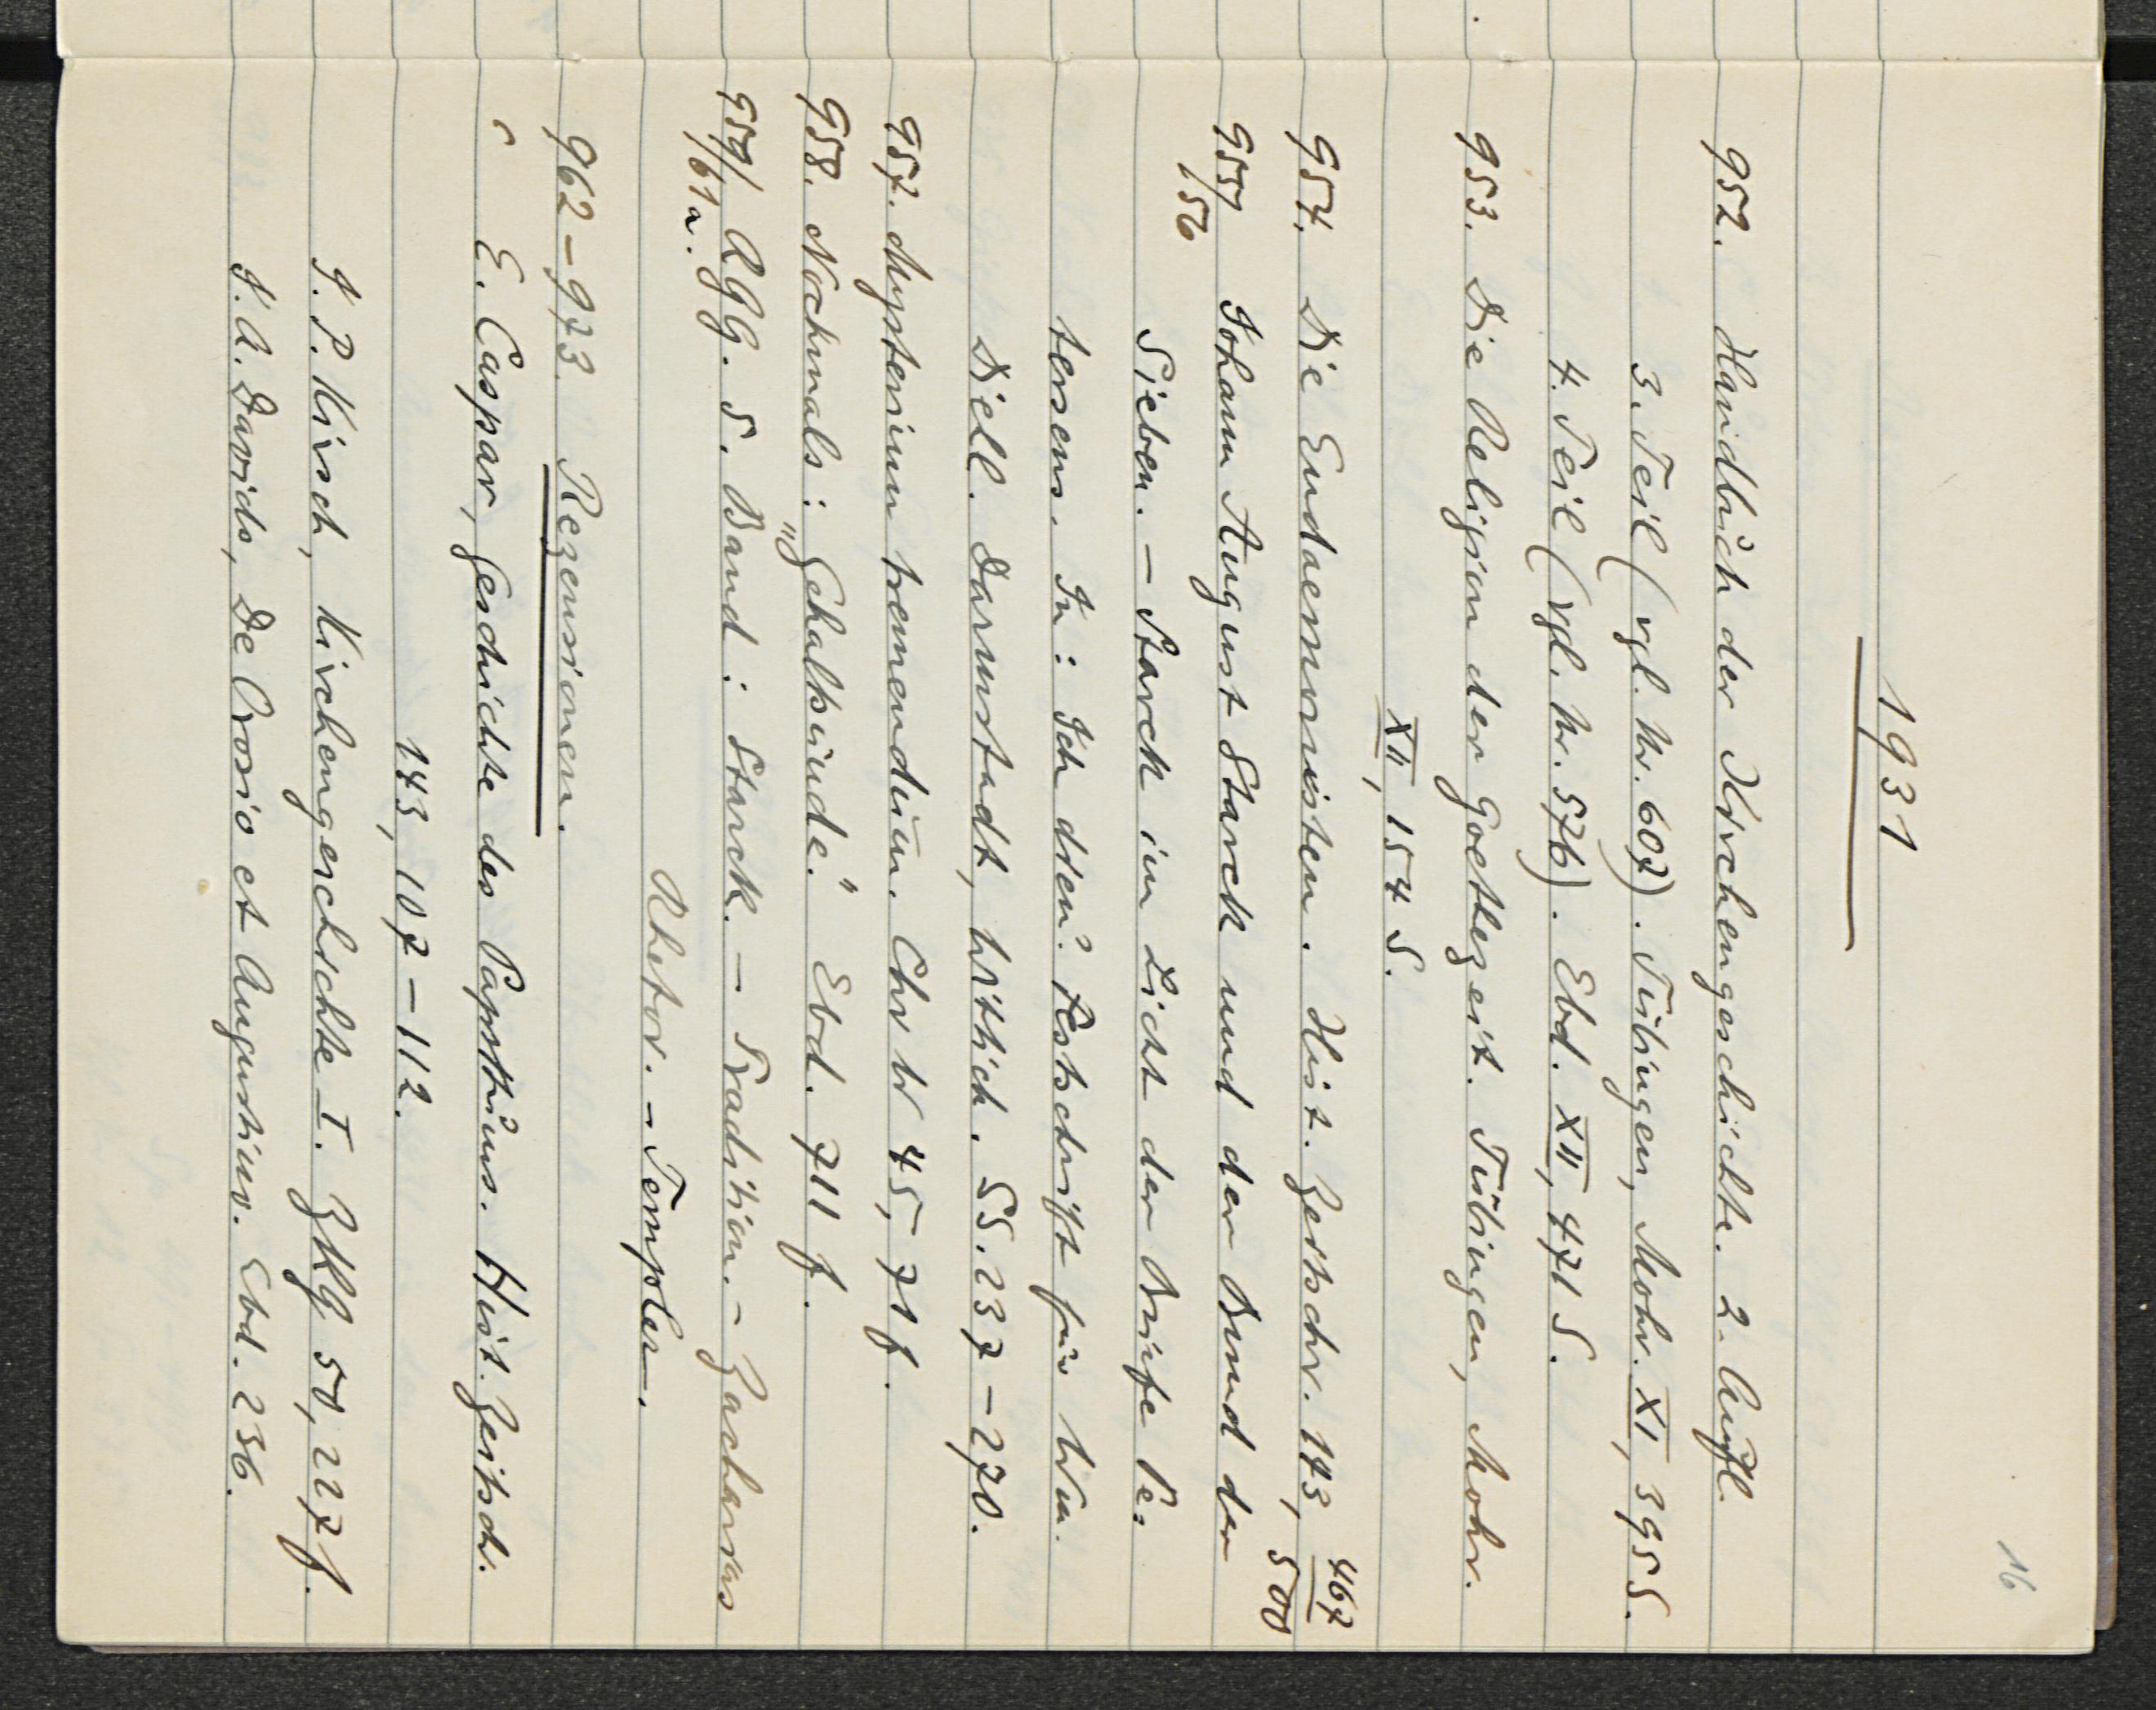 16
1931
952. Handbuch der Kirchengeschichte. 2. Aufl.
3. Teil (vgl. Nr. 607). Tübingen, Mohr. XI, 395 S.
4. Teil (vgl. Nr. 576). Ebd. XII, 471 S.
953. Die Religion der Goethezeit. Tübingen, Mohr.
XII, 154 S.
954. Die Eudaemonisten. Hist. Zeitschr. 143, 467–500
955/56 Johann August Starck und der Bund der
Sieben. – Starck im Licht der Briefe Pe-
tersens. In: „Ich dien“. Festschrift für Wm.
Diehl. Darmstadt, Wittich. SS. 237–270.
957. Mysterium tremendum. Chr W 45, 71 f.
958. Nochmals: „Gehaltsünde.“ Ebd. 711 f.
959/61a. RGG. 5. Band: Starck. – Tradition. – Zacharias
Rhetor. – Templer.
962–973. Rezensionen.
E. Caspar, Geschichte des Papsttums. Hist. Zeitschr.
143, 107–112.
J. P. Kirsch, Kirchengeschichte I. ZKG 50, 227 f.
J. A. Davids, De Orosio et Augustino. Ebd. 236.